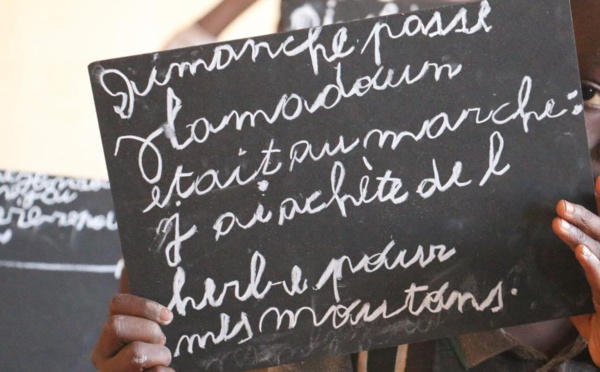 Dimanche passé
Hamadoun
était au marché :
J'ai achète de l
herbe pour
mes moutons.